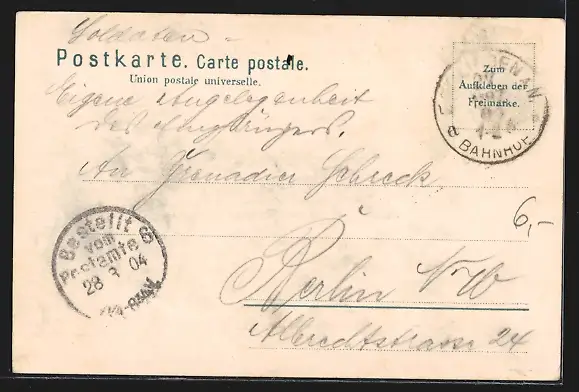 Soldaten –
Postkarte. Carte postale.
Union postale universelle.
Zum
Aufkleben der
Freimarke.
BAHNHOF
Eigene Angelegenheit
des Empfängers.
An Grenadier Schreck
6,-
Bestellt
vom
Postamte 6
28 3 04
Berlin N.W
Albrechtstrasse 24